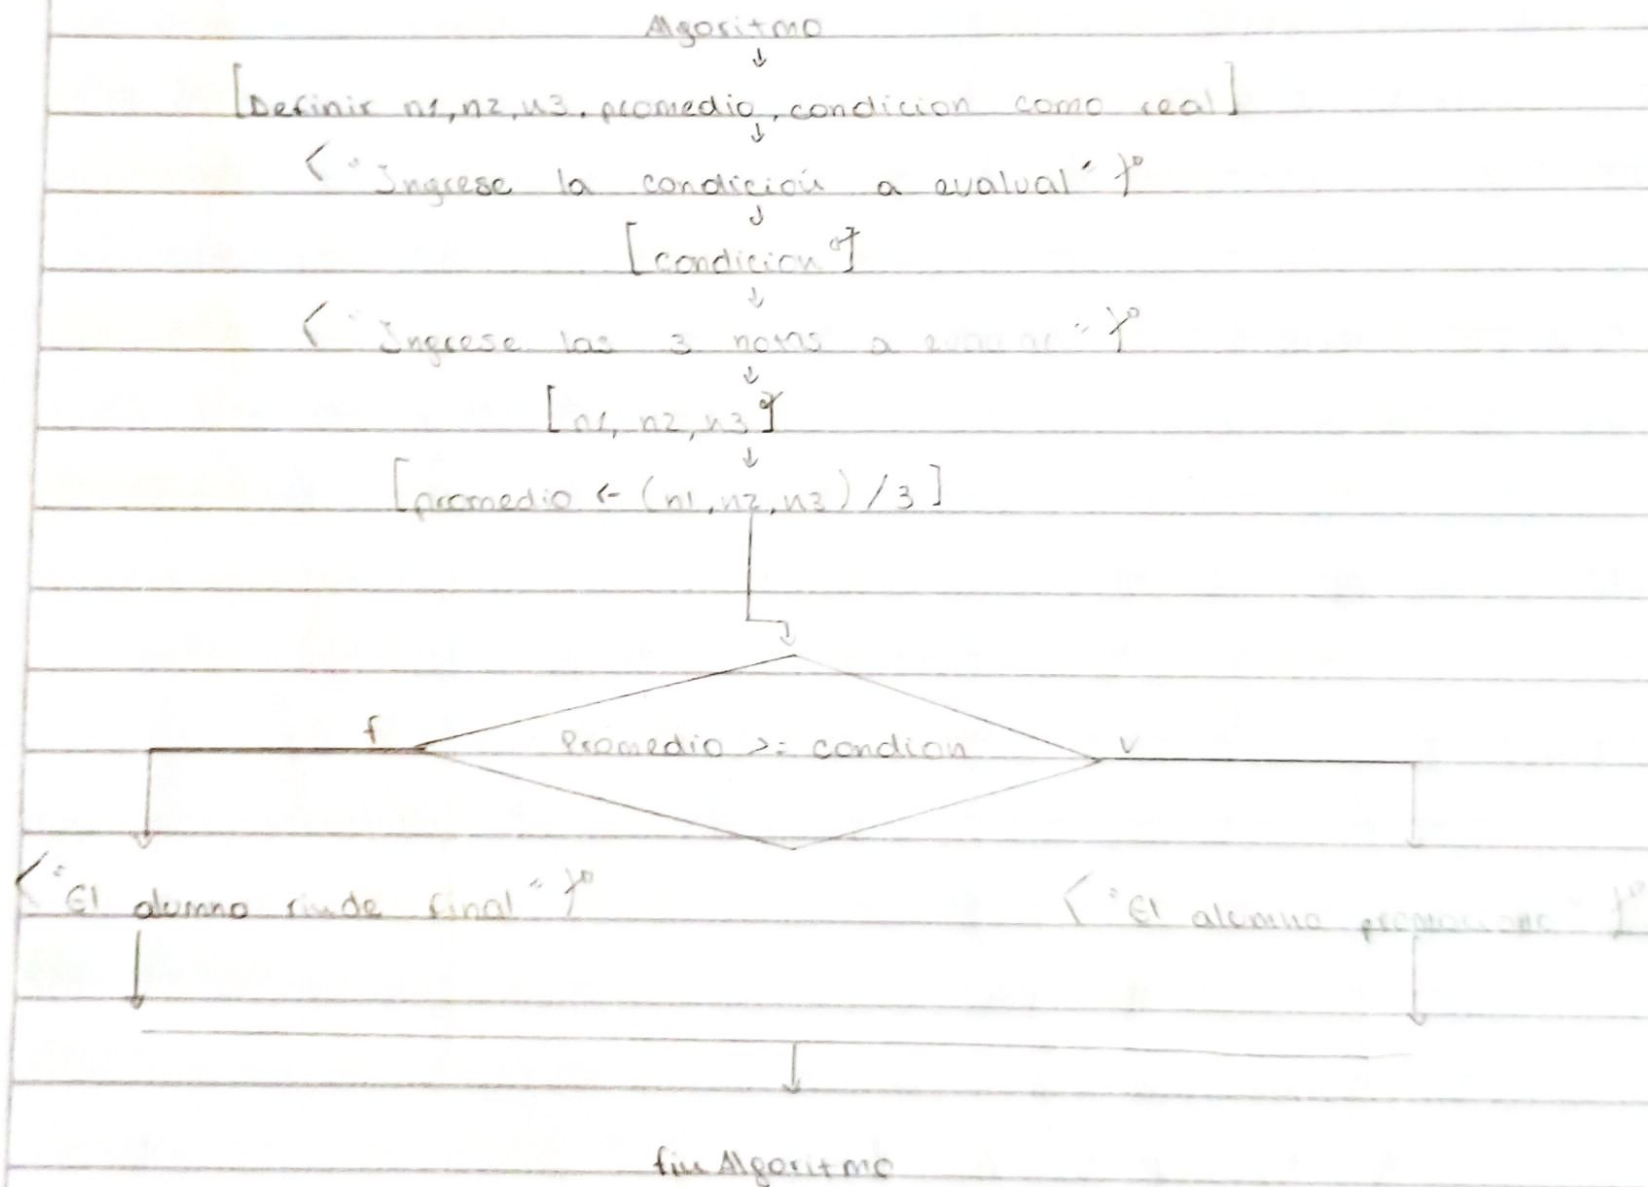 Algoritmo
[Definir n1, n2, n3, promedio, condicion como real]
"Ingrese la condición a evalual"
[condicion]
"Ingrese las 3 notas a evaluar"
[n1, n2, n3]
[promedio <- (n1, n2, n3) / 3]
f
Promedio >= condion
v
"El alumno rinde final"
"El alumno
fin Algoritmo